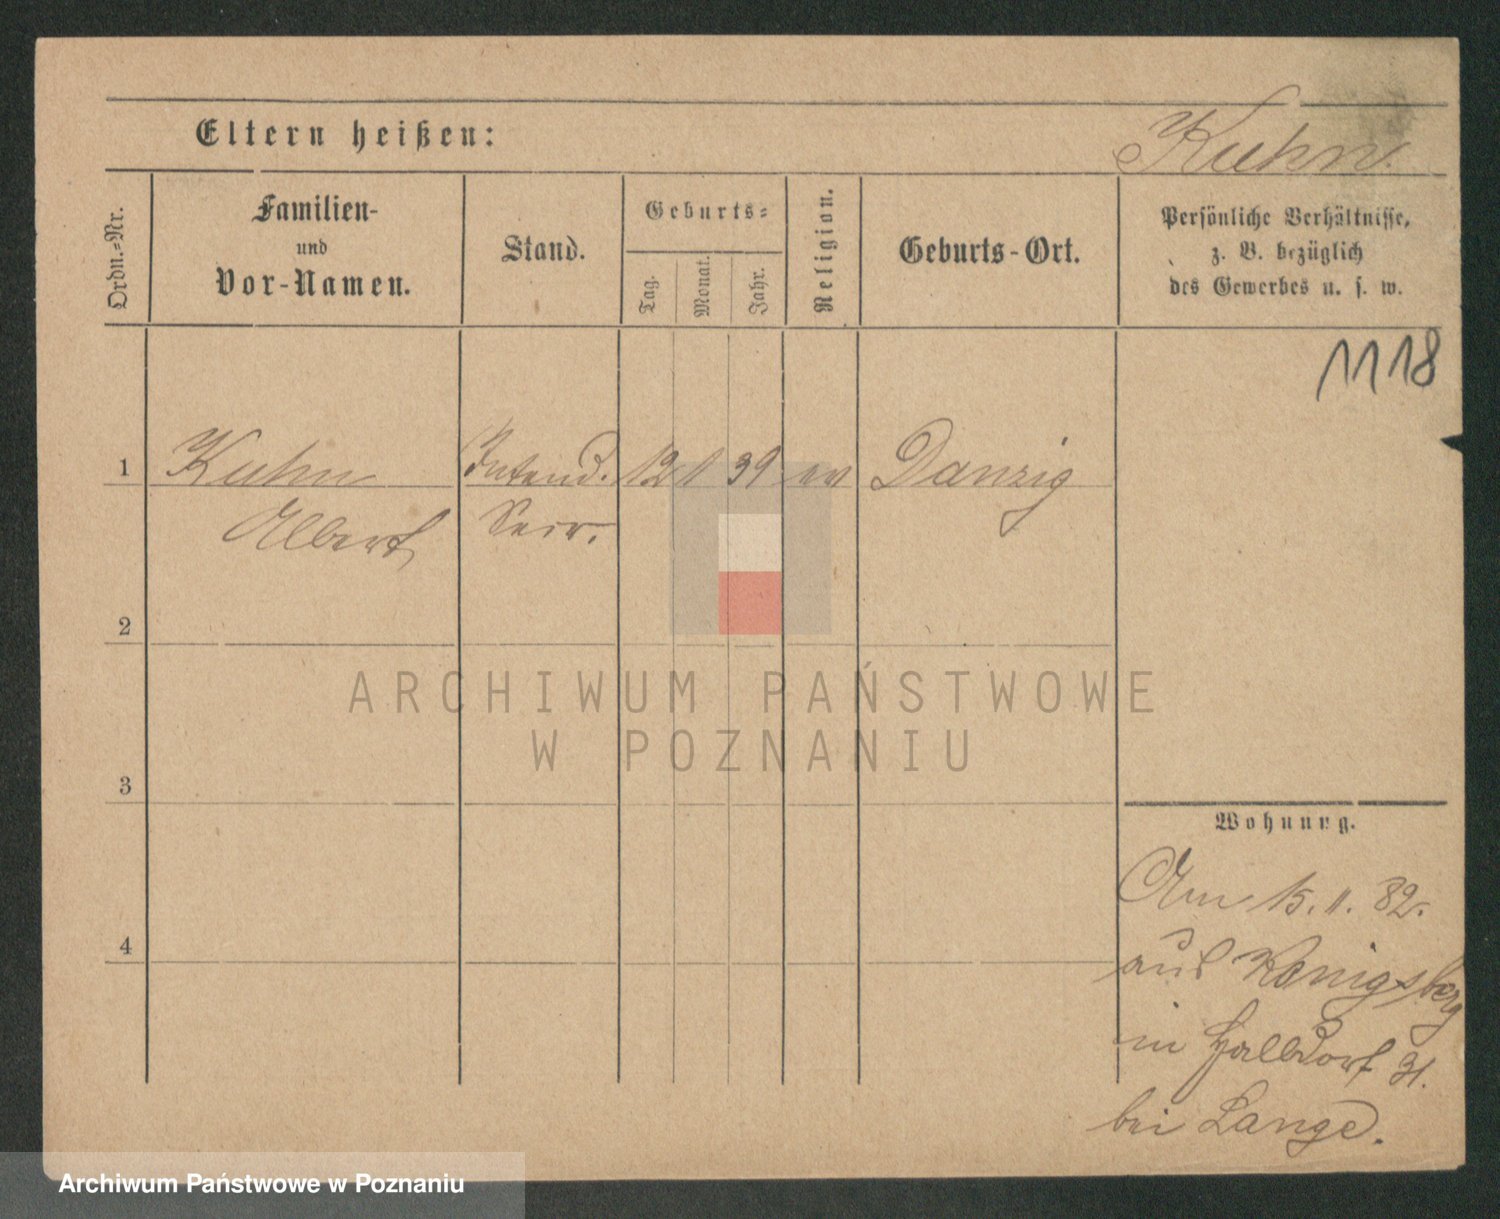 Eltern heißen:
Kuhn.
Ordn.-Nr.
Familien-
und
Vor-Namen.
Stand.
Geburts-
Tag.
Monat.
Jahr.
Religion.
Geburts-Ort.
Persönliche Verhältnisse,
z. B. bezüglich
des Gewerbes u. s. w.
1118
1 Kuhn Intend. 12 1 39 ev Danzig
Albert Secr.
2
3
4
ARCHIWUM PAŃSTWOWE
W POZNANIU
Wohnung.
Am 15. 11. 82.
aus Königsberg
in Halbdorf 31.
bei Lange.
Archiwum Państwowe w Poznaniu